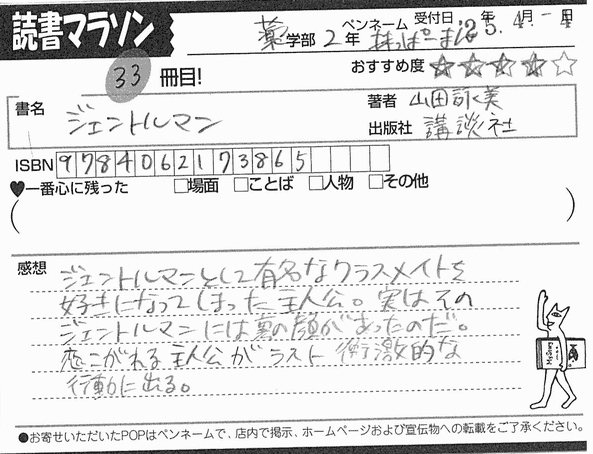 読書マラソン
薬学部 2年 ペンネーム 受付日 25年 4月
33冊目! おすすめ度 ★★★★☆
書名 ジェントルマン
著者 山田詠美
出版社 講談社
ISBN 9784062173865
♥一番心に残った □場面 □ことば □人物 □その他
( )
感想
ジェントルマンとして有名なクラスメイトを
好きになってしまった主人公。実はその
ジェントルマンには裏の顔があったのだ。
恋こがれる主人公がラスト衝激的な
行動に出る。
●お寄せいただいたPOPはペンネームで、店内で掲示、ホームページおよび宣伝物への転載をご了承ください。